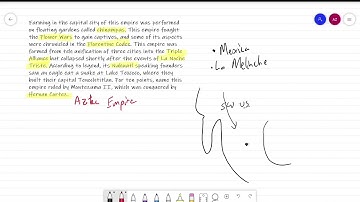 Farming in the capital city of this empire was performed
on floating gardens called chinampas. This empire fought
the Flower Wars to gain captives, and some of its aspects
were chronicled in the Florentine Codex. This empire was
formed from the unification of three cities into the Triple
Alliance but collapsed shortly after the events of La Noche
Triste. According to legend, its Nahuatl speaking founders
saw an eagle eat a snake at Lake Texcoco, where they
built their capital Tenochtitlan. For ten points, name this
empire ruled by Montezuma II, which was conquered by
Hernan Cortes.
Aztec Empire
• Mexica
• La Malinche